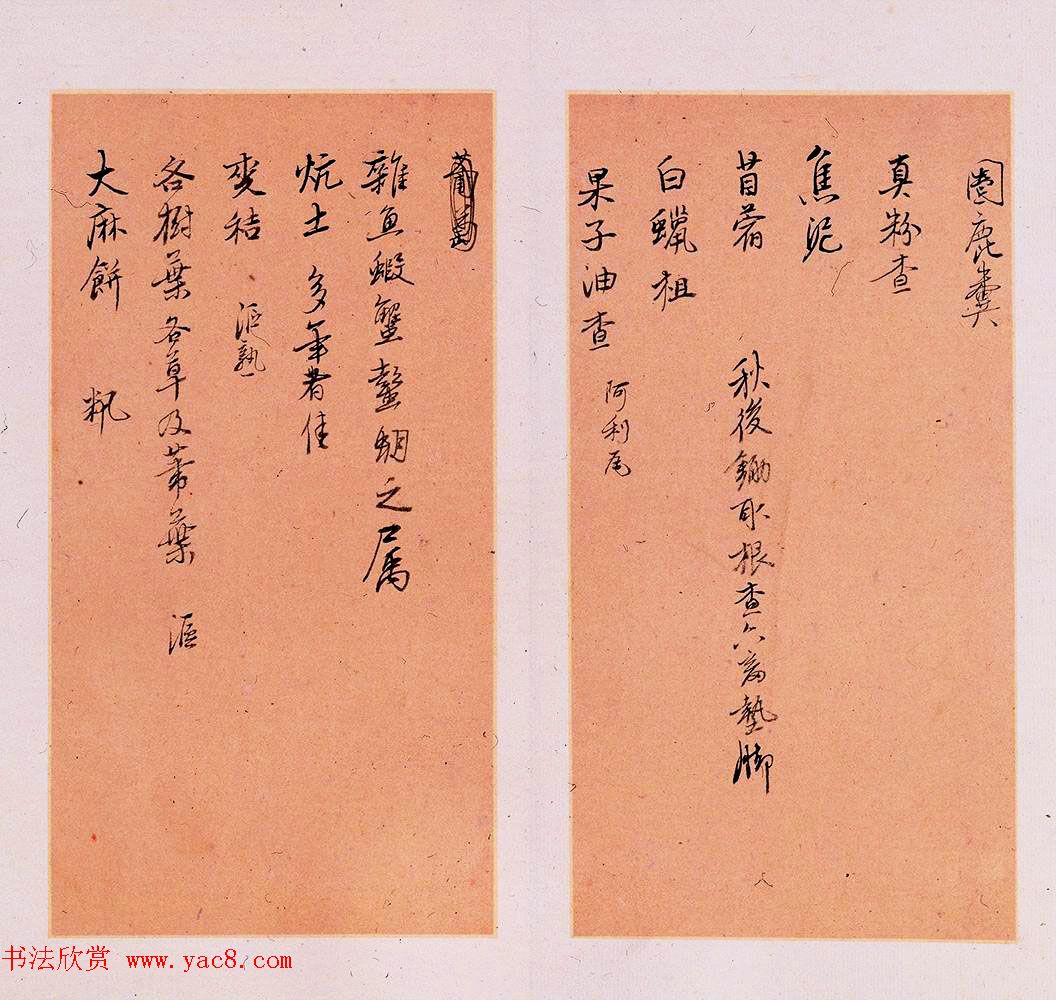 圈鹿糞
真粉查
焦泥
苜蓿 秋後鋤取根查六畜墊脚
白蠟柤
果子油查 阿利尾
葡萄
雜魚蝦蟹螯蜩之属
炕土 多年者佳
麥秸 漚熟
各樹葉各草及葦葉 漚
大麻餅 籸
书法欣赏 www.yac8.com